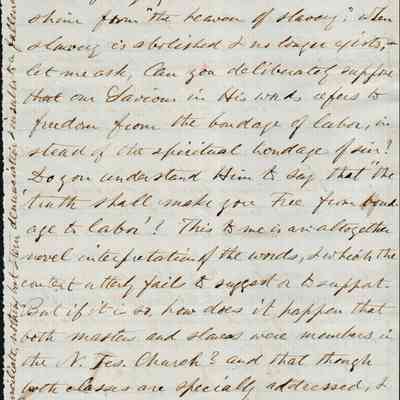 shine from "the heaven of slavery": when
slavery is abolished & no longer exists,
let me ask, Can you deliberately suppose
that our Saviour in His words refers to
freedom from the bondage of labor, in
stead of the spiritual bondage of sin?
Do you understand Him to say that "the
truth shall make you free from bond
age to labor"! This to me is an altogether
novel interpretation of the words, & which the
context utterly fails to suggest or to support.
But if it is so, how does it happen that
both masters and slaves were members in
the N. Tes. Church? and that though
both classes are specially addressed, &